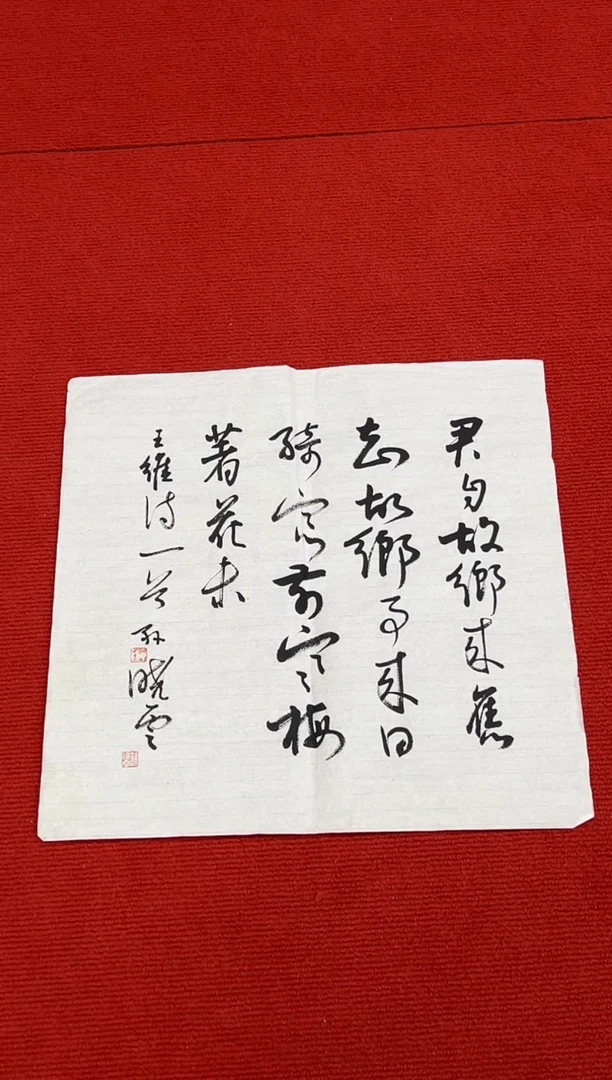 君自故鄉來應
知故鄉事來日
綺窗前寒梅
著花未
王維詩一首 孫曉雲